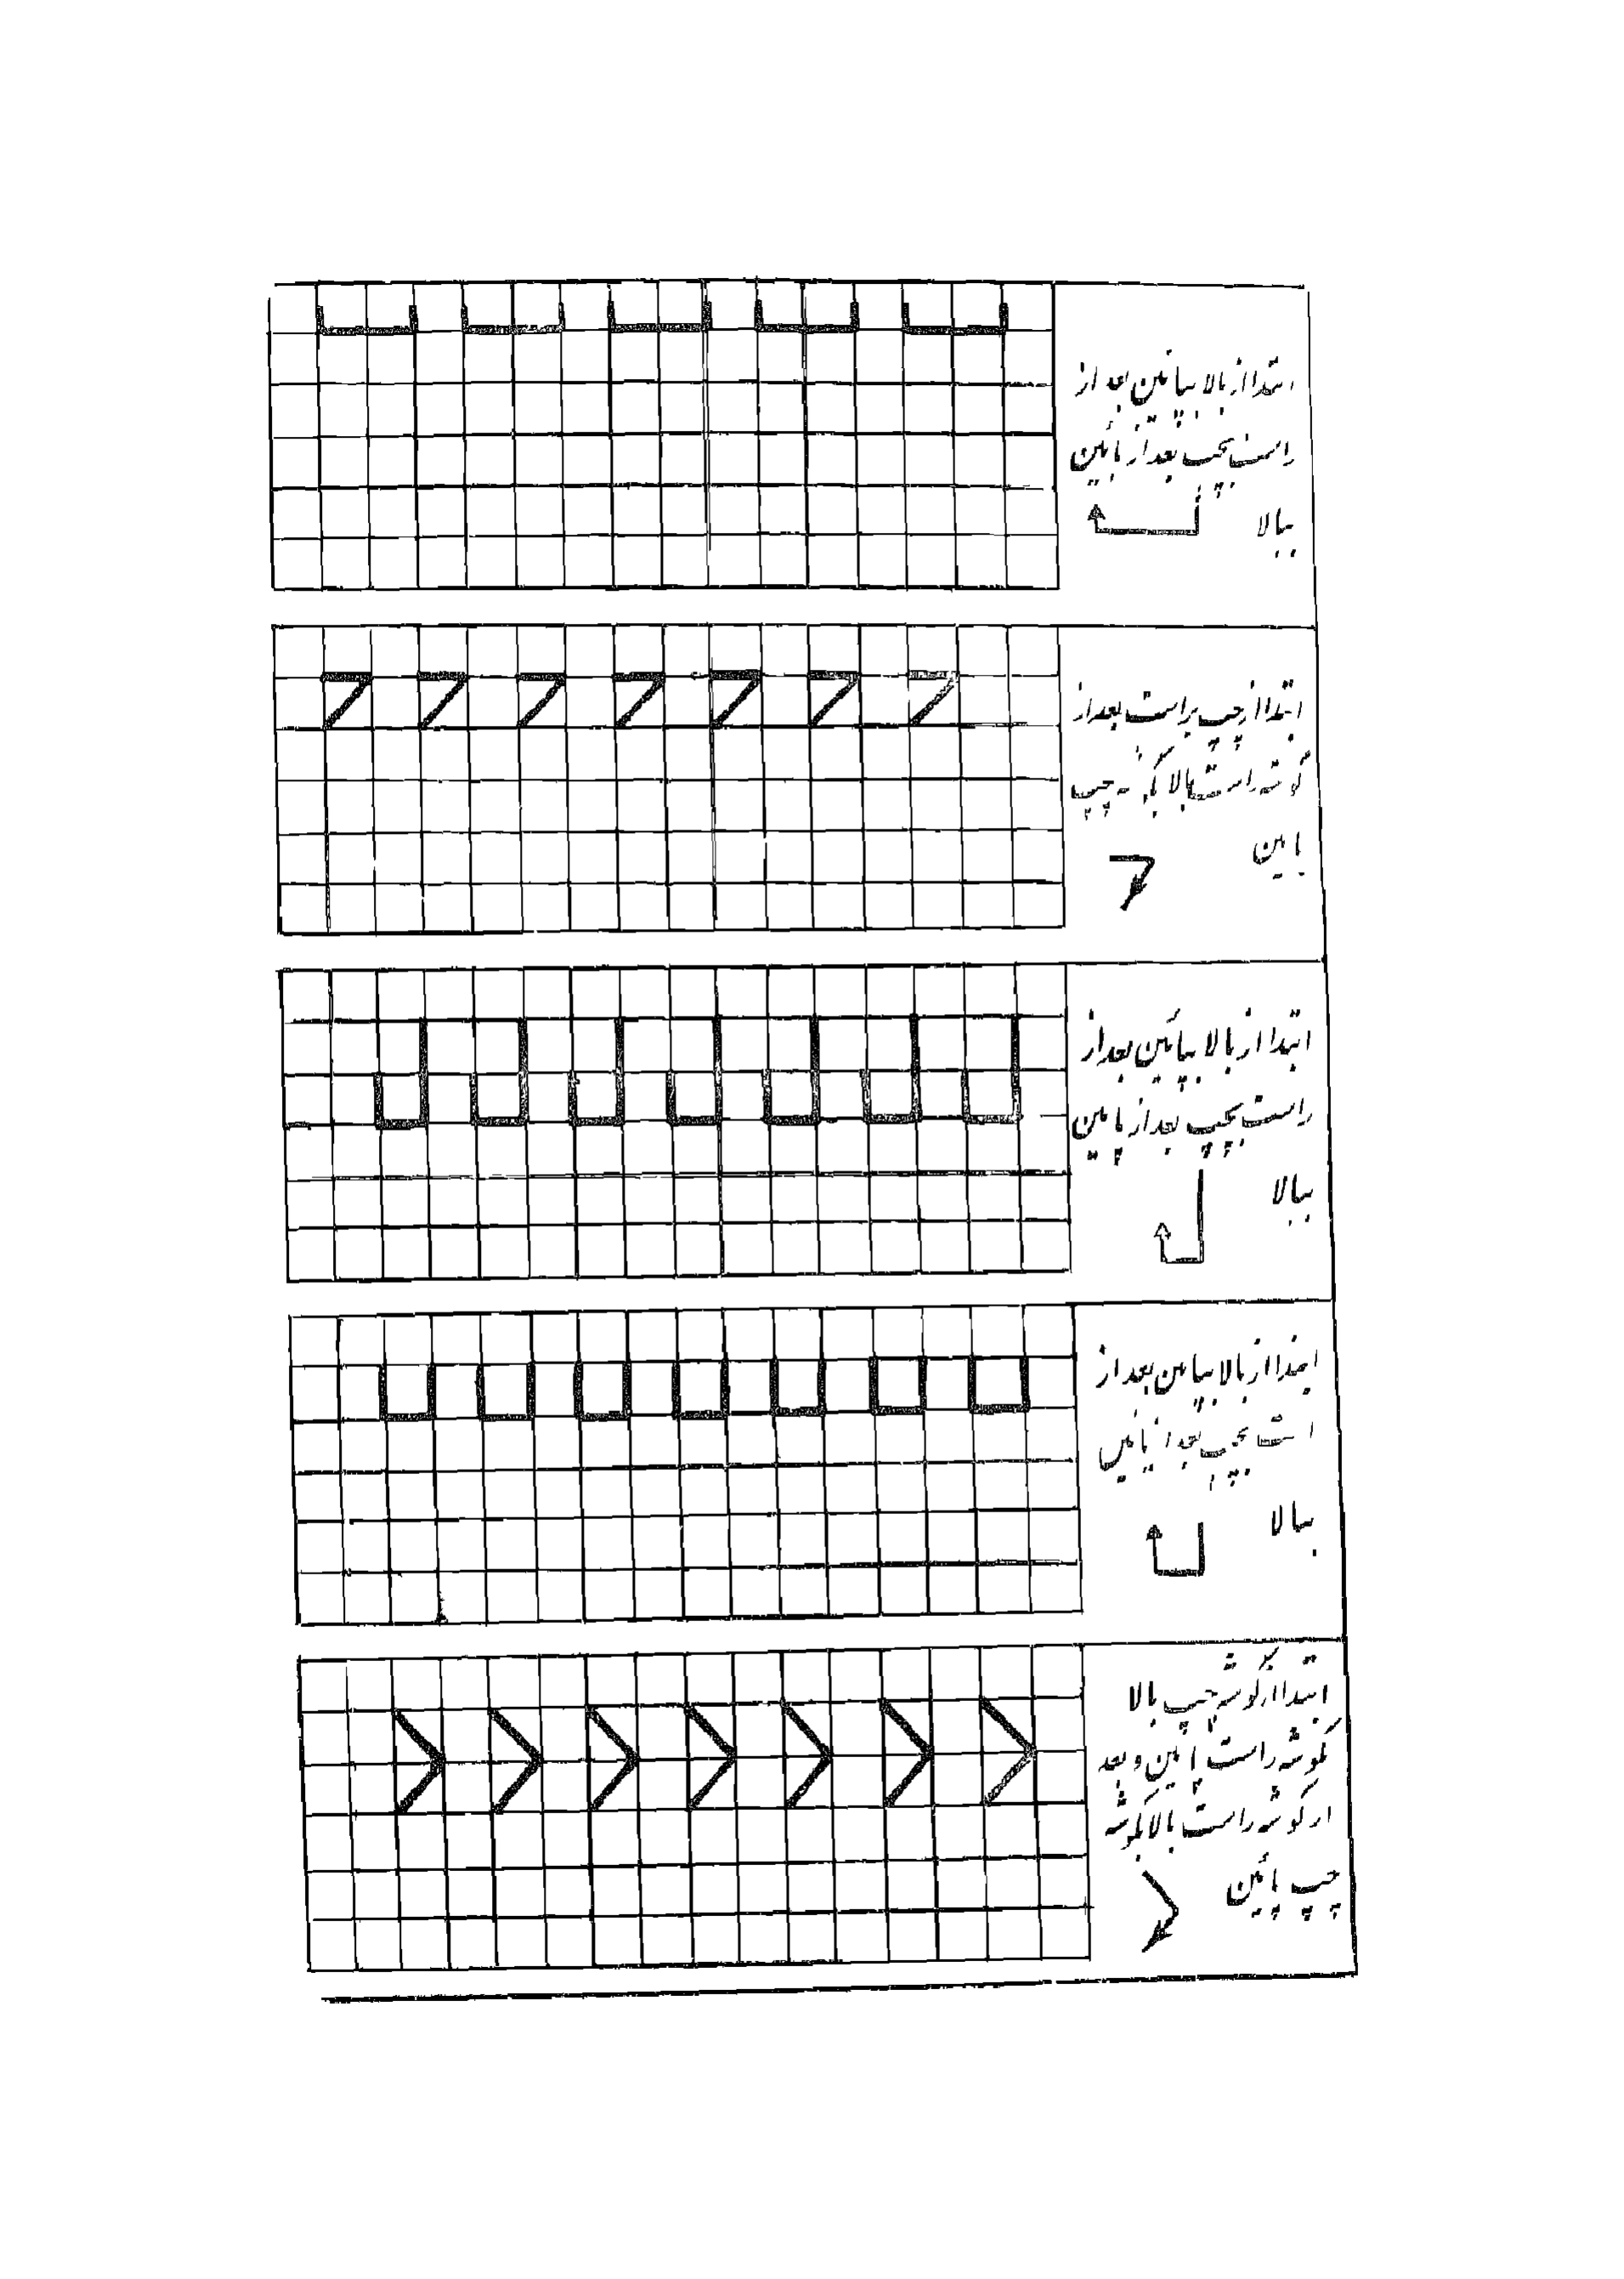 ابتدا از بالا بپائین بعد از
راست بچپ بعد از پائین
ببالا
ابتدا از چپ براست بعد از
گوشه راست بالا بگوشه چپ
پایین
ابتدا از بالا بپائین بعد از
راست بچپ بعد از پایین
ببالا
ابتدا از بالا بپایین بعد از
راست بچپ بعد از پائین
ببالا
ابتدا از گوشه چپ بالا
بگوشه راست پائین و بعد
از گوشه راست بالا بگوشه
چپ پائین